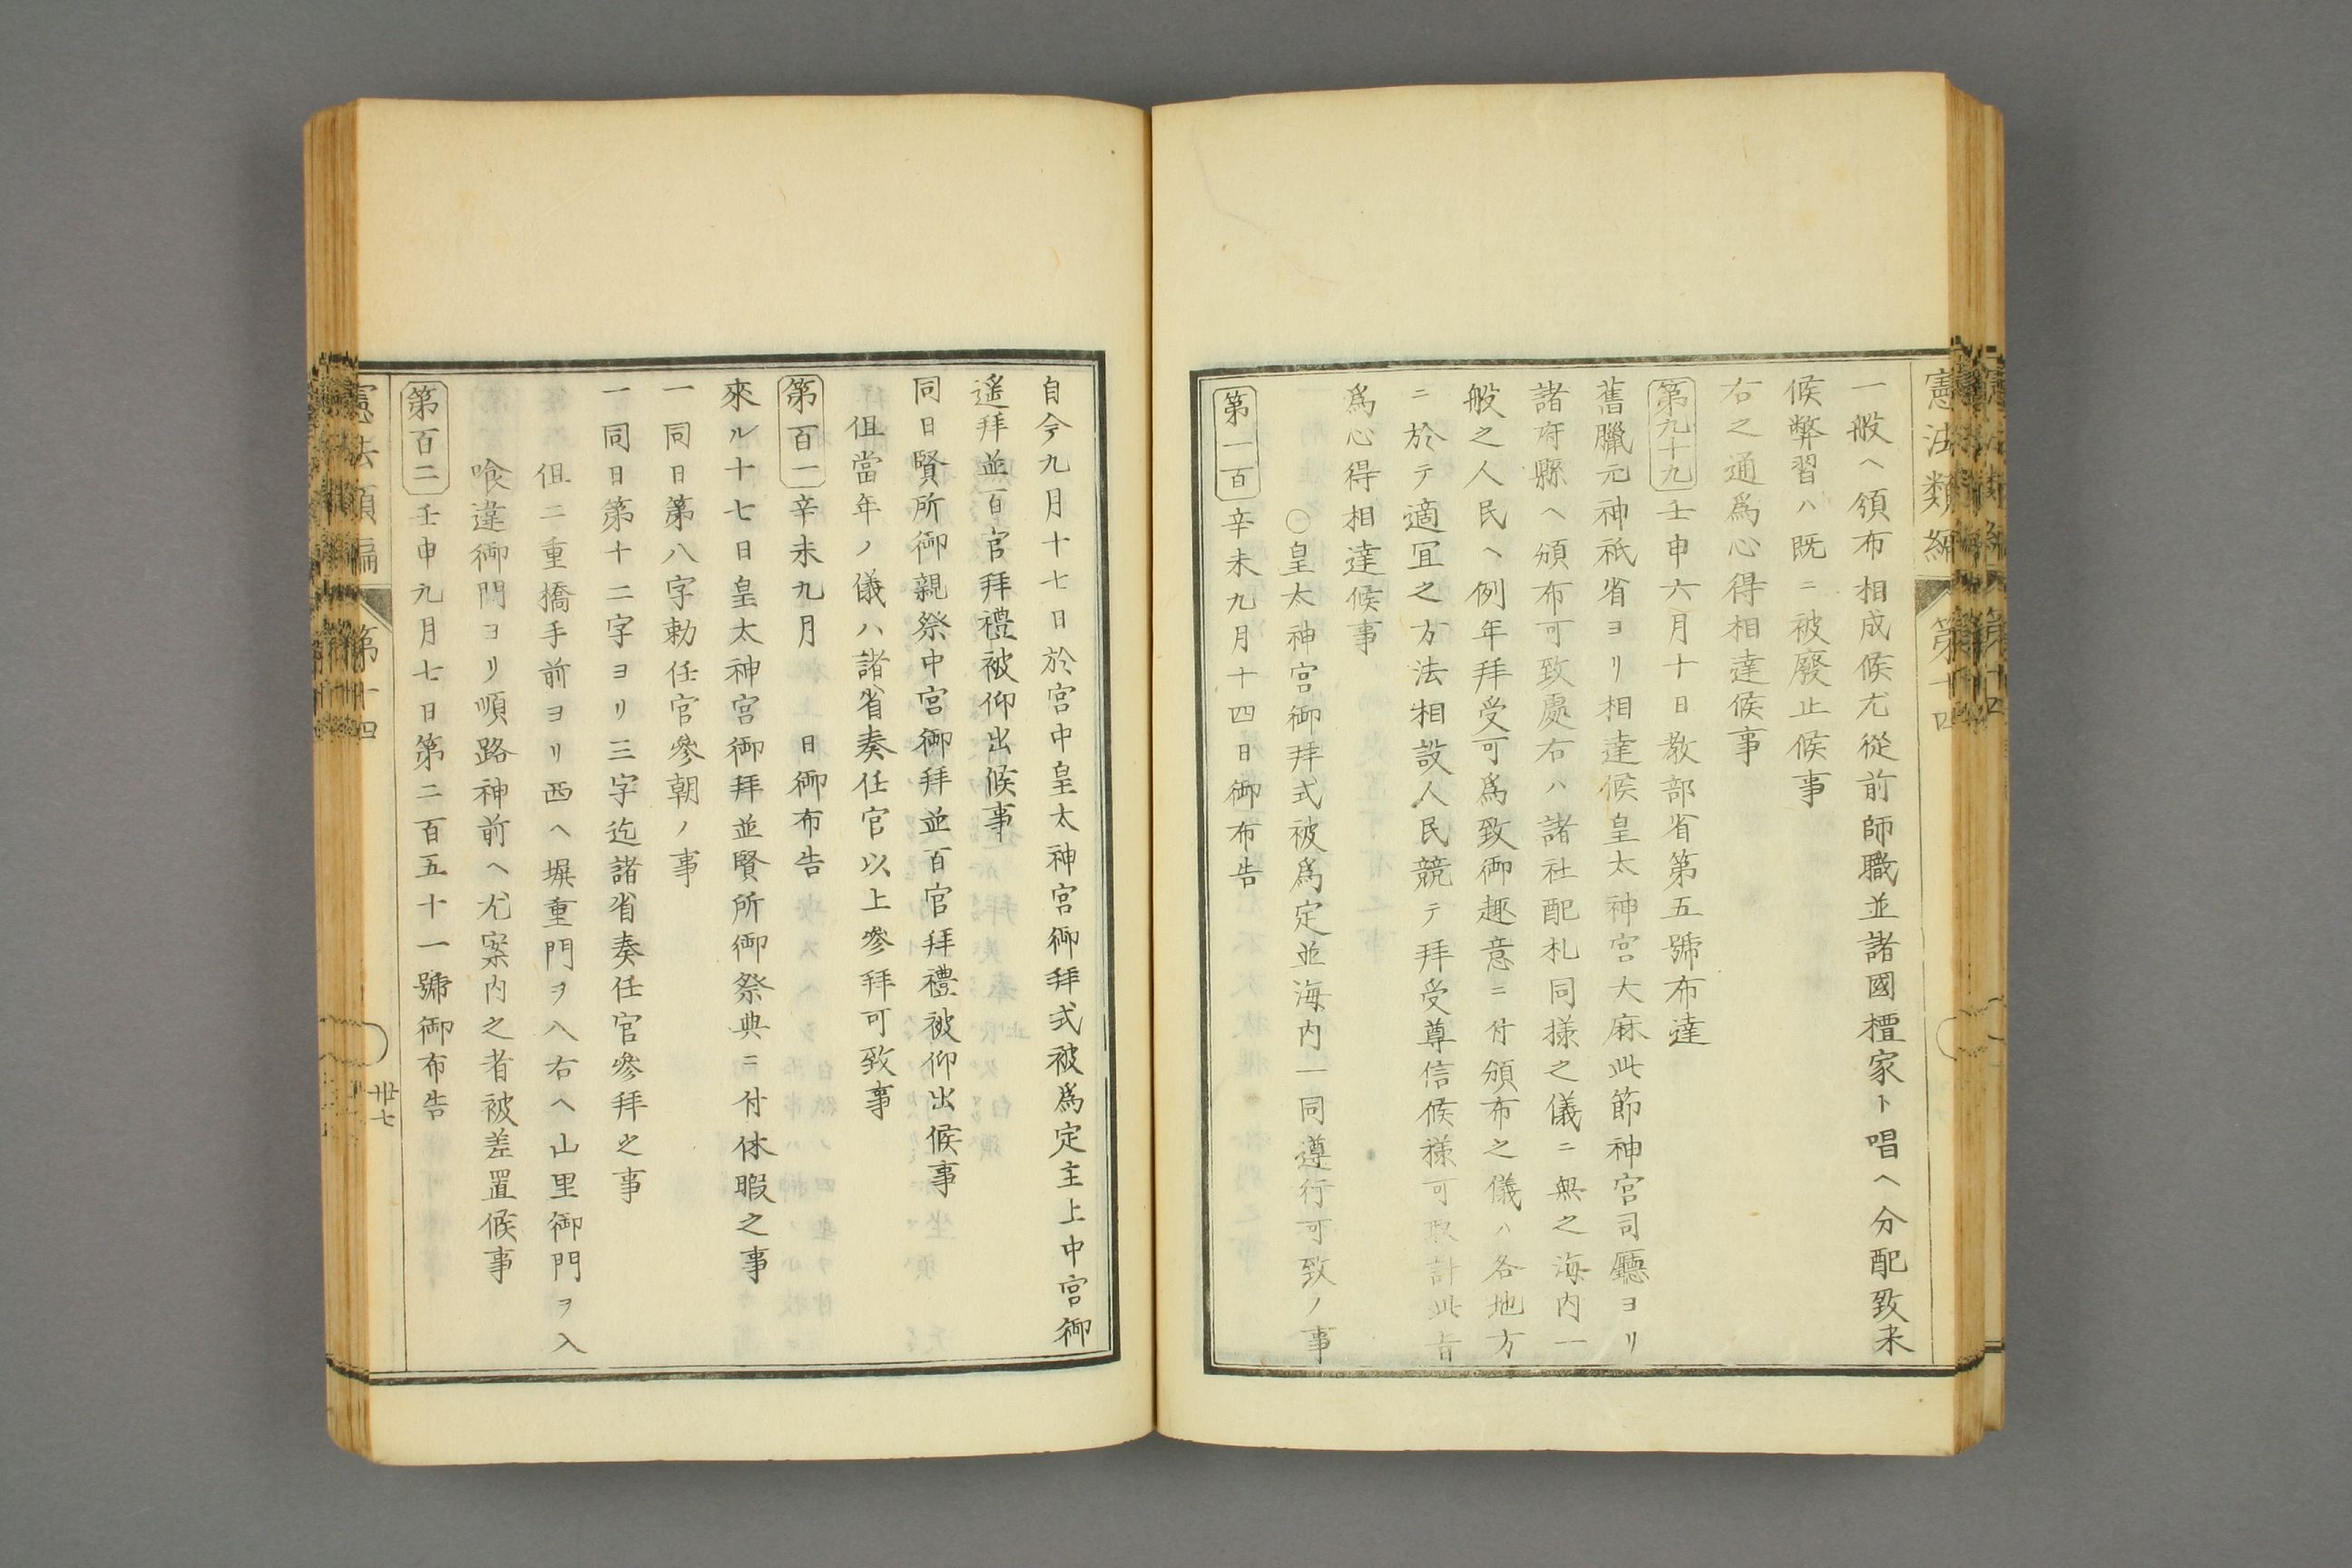 憲法類編 第十四
一般ヘ領布相成候尤從前師職並諸國檀家ト唱ヘ分配致来
候弊習ハ既ニ被廢止候事
右之通爲心得相達候事
第九十九 壬申六月十日教部省第五號布達
舊臘元神祇省ヨリ相達候皇太神宮大麻此節神宮司廳ヨリ
諸府縣ヘ頒布可致處右ハ諸社配札同様之儀ニ無之海内一
般之人民ヘ例年拜受可爲致御趣意ニ付頒布之儀ハ各地方
ニ於テ適冝之方法相設人民競テ拜受尊信候様可取計此旨
爲心得相達候事
〇皇太神宮御拜式被爲定並海内一同遵行可致ノ事
第一百 辛未九月十四日御布告
自今九月十七日於宮中皇太神宮御拜式被爲定主上中宮御
遙拜並百官拜禮被仰出候事
同日賢所御親祭中宮御拜並百官拜禮被仰出候事
但當年ノ儀ハ諸省奏任官以上參拜可致事
第百一 辛未九月 日御布告
來ル十七日皇太神宮御拜並賢所御祭典ニ付休暇之事
一同日第八字勅任官參朝ノ事
一同日第十二字ヨリ三字迄諸省奏任官參拜之事
但二重橋手前ヨリ西ヘ塀重門ヲ入右ヘ山里御門ヲ入
喰違御門ヨリ順路神前ヘ尤案内之者被差置候事
第百二 壬申九月七日第二百五十一號御布告
憲法類編 第十四
卅七